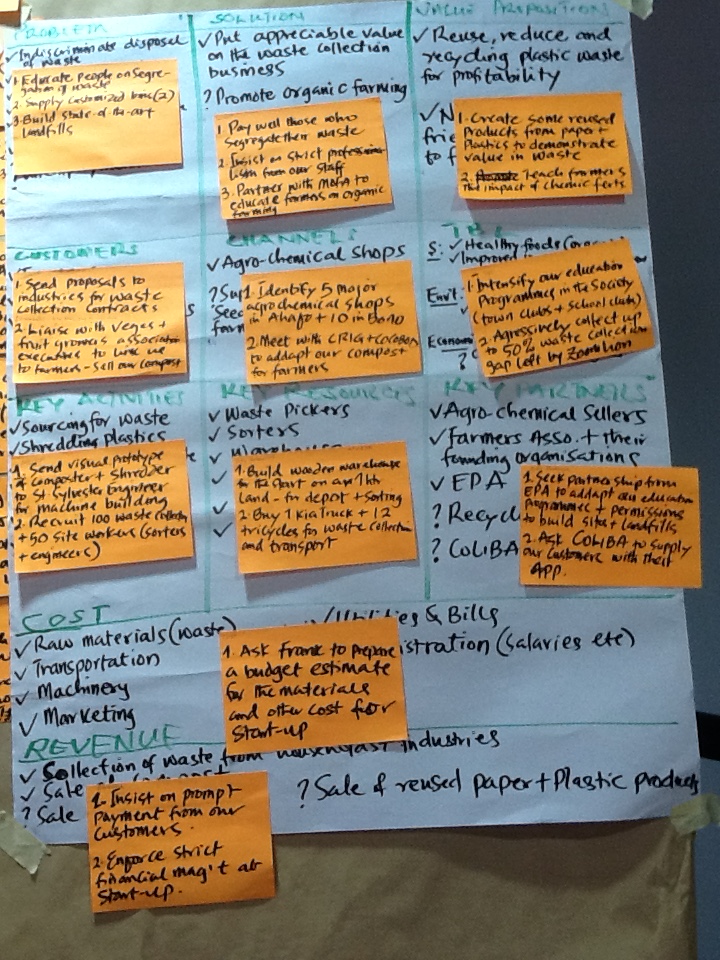 PROBLEM
Indiscriminate disposal
of waste
1. Educate people on Segre-
gation of waste
2. Supply customized bins (2)
3. Build state-of-the-art
landfills
SOLUTION
✓ Put appreciable value
on the waste collection
business
? Promote organic farming
1. Pay well those who
segregate their waste
2. Insist on strict profess
lism from our staff
3. Partner with MoFA to
educate farmers on organic
farming
VALUE PROPOSITION
✓ Reuse, reduce and
recycling plastic waste
for profitability
✓ N
frie
to f
1. Create some reused
Products from paper +
Plastics to demonstrate
value in waste
2. Teach farmers
the impact of chemic ferts
CUSTOMERS
1. Send proposals to
industries for waste
collection contracts
2. Liaise with Veges +
fruit growers association
executives to
to farmers - Sell our compost
CHANNELS
✓ Agro-chemical shops
? Sup
Seed
farm
1. Identify 5 major
agrochemical shops
in Ahafo + 10 in Bono
2. Meet with CRIG + COCOBOD
to addapt our compost
for farmers
TBL
S: ✓ Healthy foods (or
✓ Improved
Envit.
Econom
?
1. Intensify our education
Programmes in the Society
(town clubs + School clubs)
2. Agressively collect up
to 50% waste collection
gap left by Zoomlion
KEY ACTIVITIES
✓ Sourcing for waste
✓ Shredding plastics
1. Send visual prototype
of Composter + Shredder
to St Sylvester Engineer
for machine building
2. Recruit 100 waste collectors
+ 50 site workers (sorters
+ engineers)
KEY RESOURCES
✓ Waste Pickers
✓ Sorters
✓ Warehouse
✓
✓
1. Build wooden warehouse
for the start on a
land - for depot + Sorting
2. Buy 1 Kia Truck + 12
tricycles for waste collection
and transport
KEY PARTNERS
✓ Agro-chemical Sellers
✓ Farmers Asso. + their
funding organisations
✓ EPA
? Recycl
? CoLIBA
1. Seek partnership from
EPA to addapt our education
Programmes + permissions
to build sites + landfills
2. Ask CoLIBA to Supply
our Customers with their
App.
COST
✓ Raw materials (waste)
✓ Transportation
✓ Machinery
✓ Marketing
✓ Utilities & Bills
istration (salaries etc)
1. Ask Frank to prepare
a budget estimate
for the materials
and other cost for
Start-up
REVENUE
✓ Collection of waste from household industries
✓ Sale
? Sale
? Sale of reused paper + Plastic products
1. Insist on prompt
payment from our
Customers.
2. Enforce Strict
financial mag't at
Start-up.